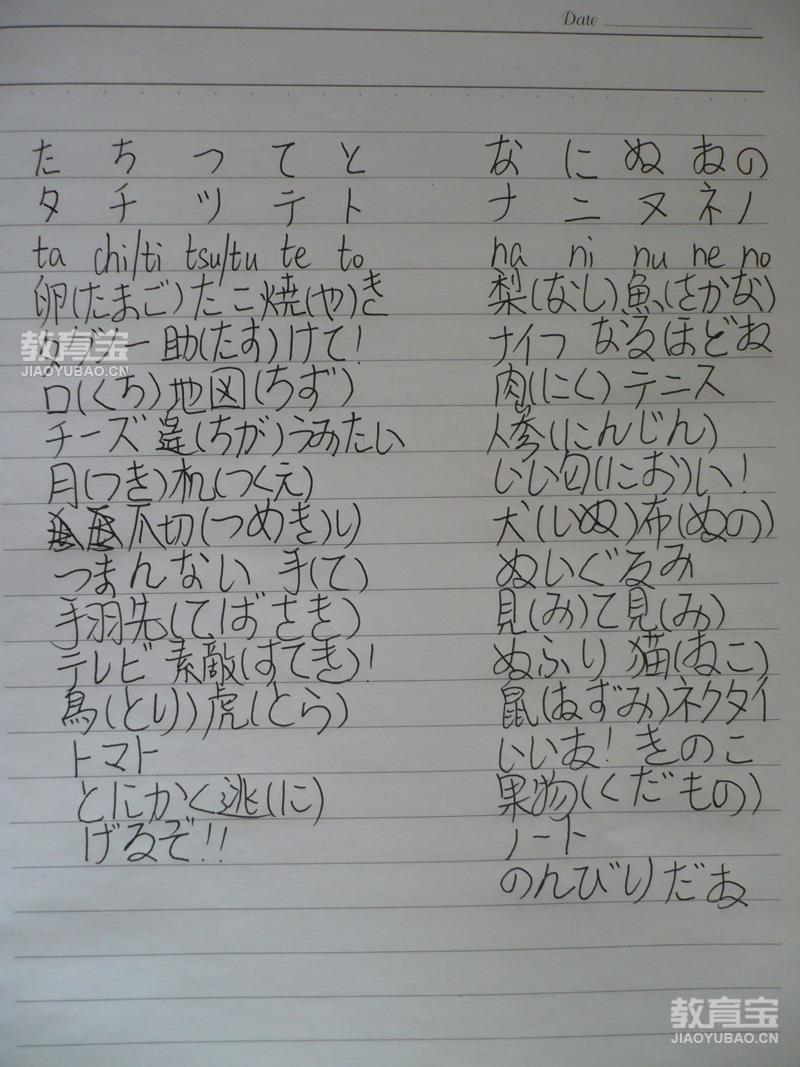 Date
た ち つ て と
タ チ ツ テ ト
ta chi/ti tsu/tu te to
卵(たまご)たこ焼(や)き
タクシー 助(たす)けて!
口(くち)地図(ちず)
チーズ 違(ちが)うみたい
月(つき)机(つくえ)
爪切(つめき)り
つまんない 手(て)
手羽先(てばさき)
テレビ 素敵(すてき)!
鳥(とり)虎(とら)
トマト
とにかく逃(に)
げるぞ!!
な に ぬ ね の
ナ ニ ヌ ネ ノ
na ni nu ne no
梨(なし)魚(さかな)
ナイフ なるほどね
肉(にく)テニス
人参(にんじん)
いい匂(にお)い!
犬(いぬ)布(ぬの)
ぬいぐるみ
見(み)て見(み)
ぬふり 猫(ねこ)
鼠(ねずみ)ネクタイ
いいね!きのこ
果物(くだもの)
ノート
のんびりだね
教育宝
JIAOYUBAO.CN
教育宝
JIAOYUBAO.CN